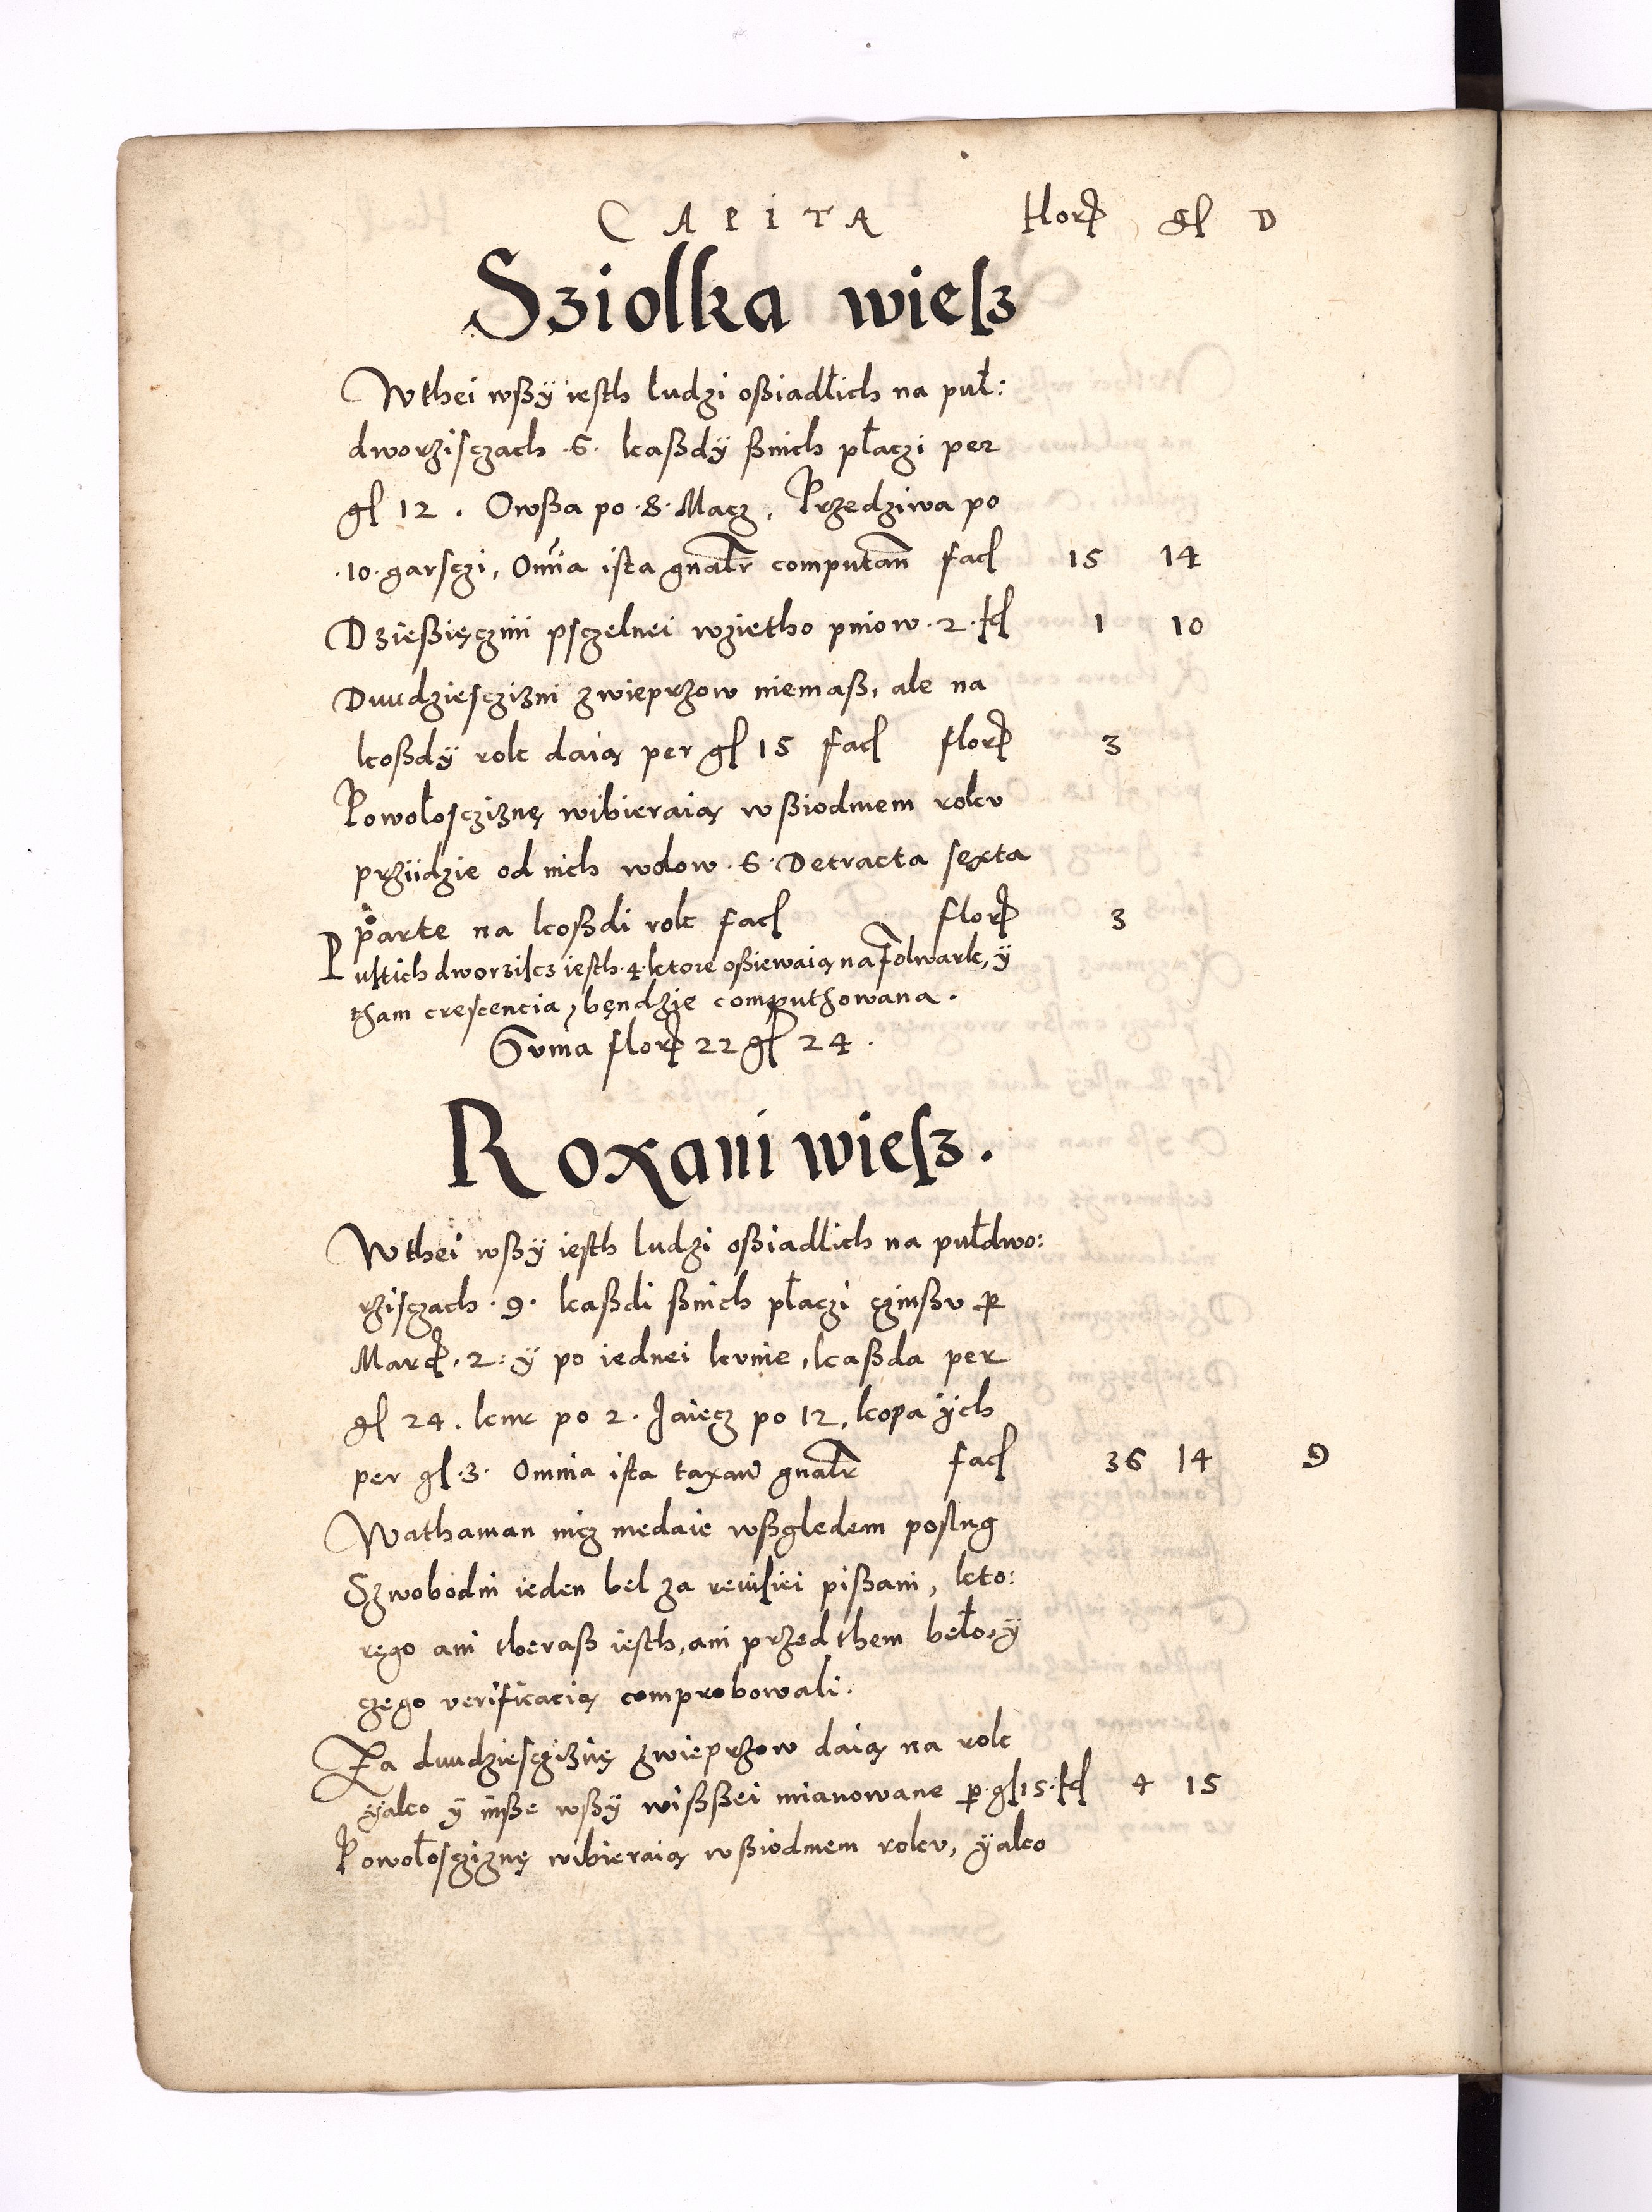 CAPITA flor gl D
Sziolka wiesz
W thei wßÿ iesth ludzi oßiadłich na puł:
dworzisczach .6. kaßdÿ ßnich płaczi per
gl 12. Owßa po .8. Macz, Przedziwa po
.10. garsczi, Omnia ista gnalr computan facl 15 14
Dzießięczini psczelnei wzietho pniow .2. fcl 1 10
Dwudziesczizni zwieprzow niemaß, ale na
koßdÿ rok daią per gl 15 facl flor 3
Powołoscziznę wibieraią w ßiodmem roku
przÿdzie od nich wołow .6. Detracta sexta
parte na koßdi rok facl flor 3
Pustich dworzisk iesth .4. ktore oßiewaią na Folwark, ÿ
tham crescencia, będzie computhowana.
Suma flor 22 gl 24.
Roxani wiesz.
W thei wßÿ iesth ludzi oßiadlich na pułdwo:
rzisczach .9. kaßdi ßnich płaczi czinßu per
Marcl .2: ÿ po iednei kunie, kaßda per
gl 24. kur po 2. Jaiecz po 12, kopa ÿch
per gl .3. Omnia ista taxan gnalr facl 36 14 9
Wathaman nicz niedaie wßgledem poslug
Szwobodni ieden bel za reuisiei pißani, kto:
rego ani theraß iesth, ani przed them beło, ÿ
czego verificacią comprobowali.
Za dwudziesciznę zwieprzow daią na rok
ÿako ÿ inße wßÿ wißßei mianowane per gl 15. fcl 4 15
Powołosciznę wibieraią w ßiodmem roku, ÿako